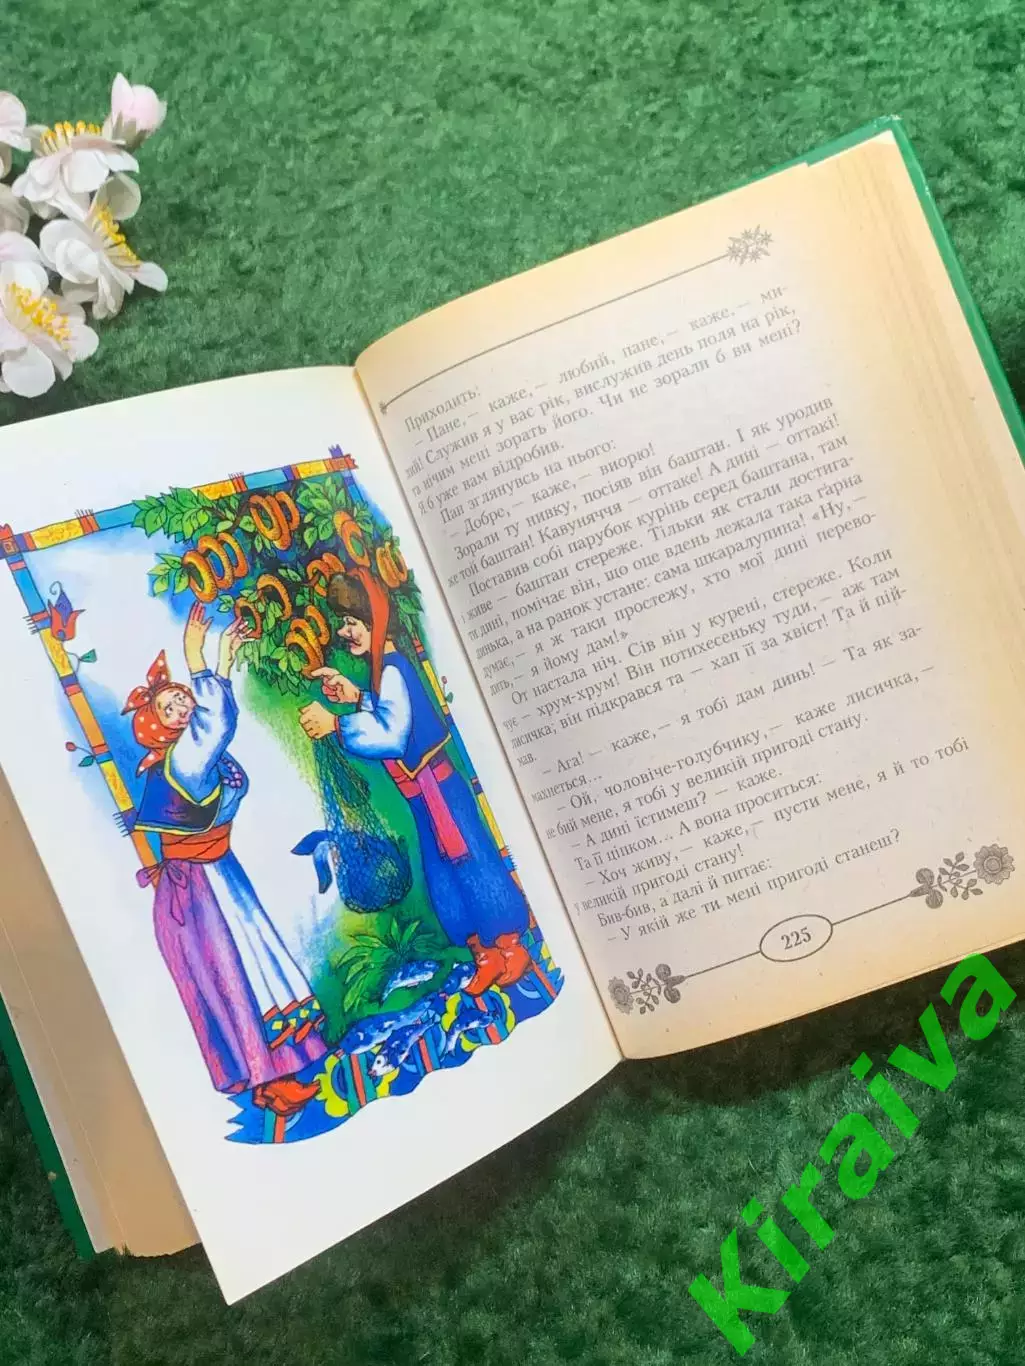 Приходить!
– Пане,– каже,– любий, пане,– каже,– ми-
лий! Служив я у вас рік, вислужив день поля на рік,
та нічим мені зорать його. Чи не зорали б ви мені?
Я б уже вам відробив.
Пан зглянувсь на нього:
– Добре,– каже,– виорю!
Зорали ту нивку, посіяв він баштан. І як уродив
же той баштан! Кавуняччя – оттаке! А дині – оттакі!
Поставив собі парубок курінь серед баштана, там
і живе – баштан стереже. Тільки як стали достига-
ти дині, помічає він, що оце вдень лежала така гарна
динька, а на ранок устане: сама шкаралупина! «Ну,–
думає,– я ж таки простежу, хто мої дині перево-
дить,– я йому дам!»
От настала ніч. Сів він у курені, стереже. Коли
чує – хрум-хрум! Він потихесеньку туди,– аж там
лисичка; він підкрався та – хап її за хвіст! Та й пій-
хав.
– Ага! – каже,– я тобі дам динь! – Та як за-
махнеться...
– Ой, чоловіче-голубчику,– каже лисичка,–
не бий мене, я тобі у великій пригоді стану.
– А дині їстимеш? – каже.
Та її ціпком... А вона проситься:
– Хоч живу,– каже,– пусти мене, я й то тобі
у великій пригоді стану!
Бив-бив, а далі й питає:
– У якій же ти мені пригоді станеш?
225
Kiraiva